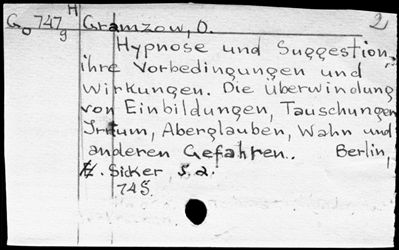 Go 747 H g Gramzow, O. 2
Hypnose und Suggestion,
ihre Vorbedingungen und
Wirkungen. Die Überwindung
von Einbildungen, Tauschungen
Irrtum, Aberglauben, Wahn und
anderen Gefahren. Berlin,
H. Sicker, s.a.
74 S.